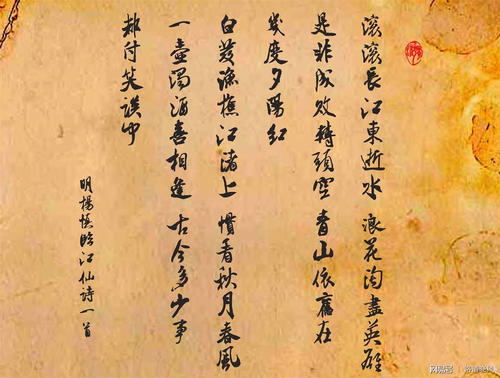 滚滚長江東逝水 浪花淘盡英雄
是非成敗轉頭空 青山依舊在
幾度夕陽紅
白發漁樵江渚上 慣看秋月春風
一壺濁酒喜相逢 古今多少事
都付笑談中
明楊慎臨江仙詩一首